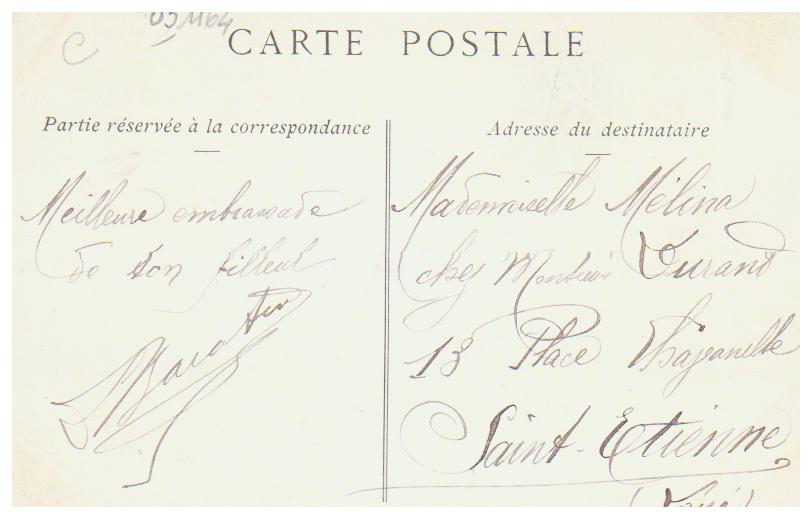 C
CARTE POSTALE
Partie réservée à la correspondance
Meilleure embrassade
de ton filleul
Adresse du destinataire
Mademoiselle Mélina
chez Monsieur Durand
13 Place Chavanelle
Saint-Etienne
(Loire)